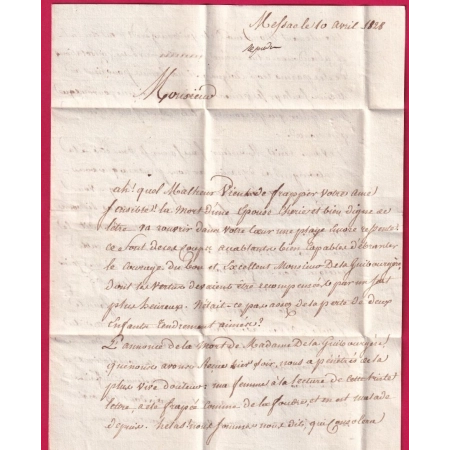 Messac le 10 avril 1828
Monsieur
ah! quel Malheur Vient de frapper votre ame
sensible! la Mort d'une Epouse Cherie et bien digne de
l'être va rouvrir dans votre Cœur une playe
ce sont de ces coups accablants bien Capables d'Ebranler
le courage du bon et Excellent Monsieur De la Guibourgère
dont les vertus devraient être recompensées par un sort
plus heureux. N'était-ce pas assez de la perte de deux
Enfants tendrement aimés?
L'annonce de la Mort de Madame De la Guibourgère!
que nous avons reçue hier soir, nous a pénétrés de la
plus Vive douleur: ma femme à la lecture de cette triste
lettre, a été frapée comme de la foudre, et en est malade
depuis. helas! nous sommes nous dit, qui Consolera